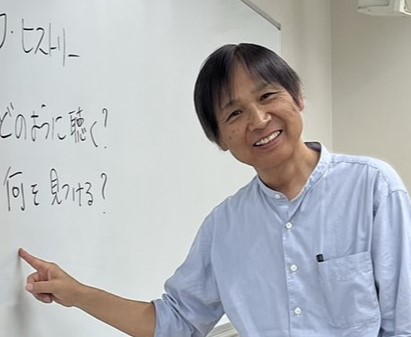 ・ヒストリー
どのように聴く?
何を見つける?